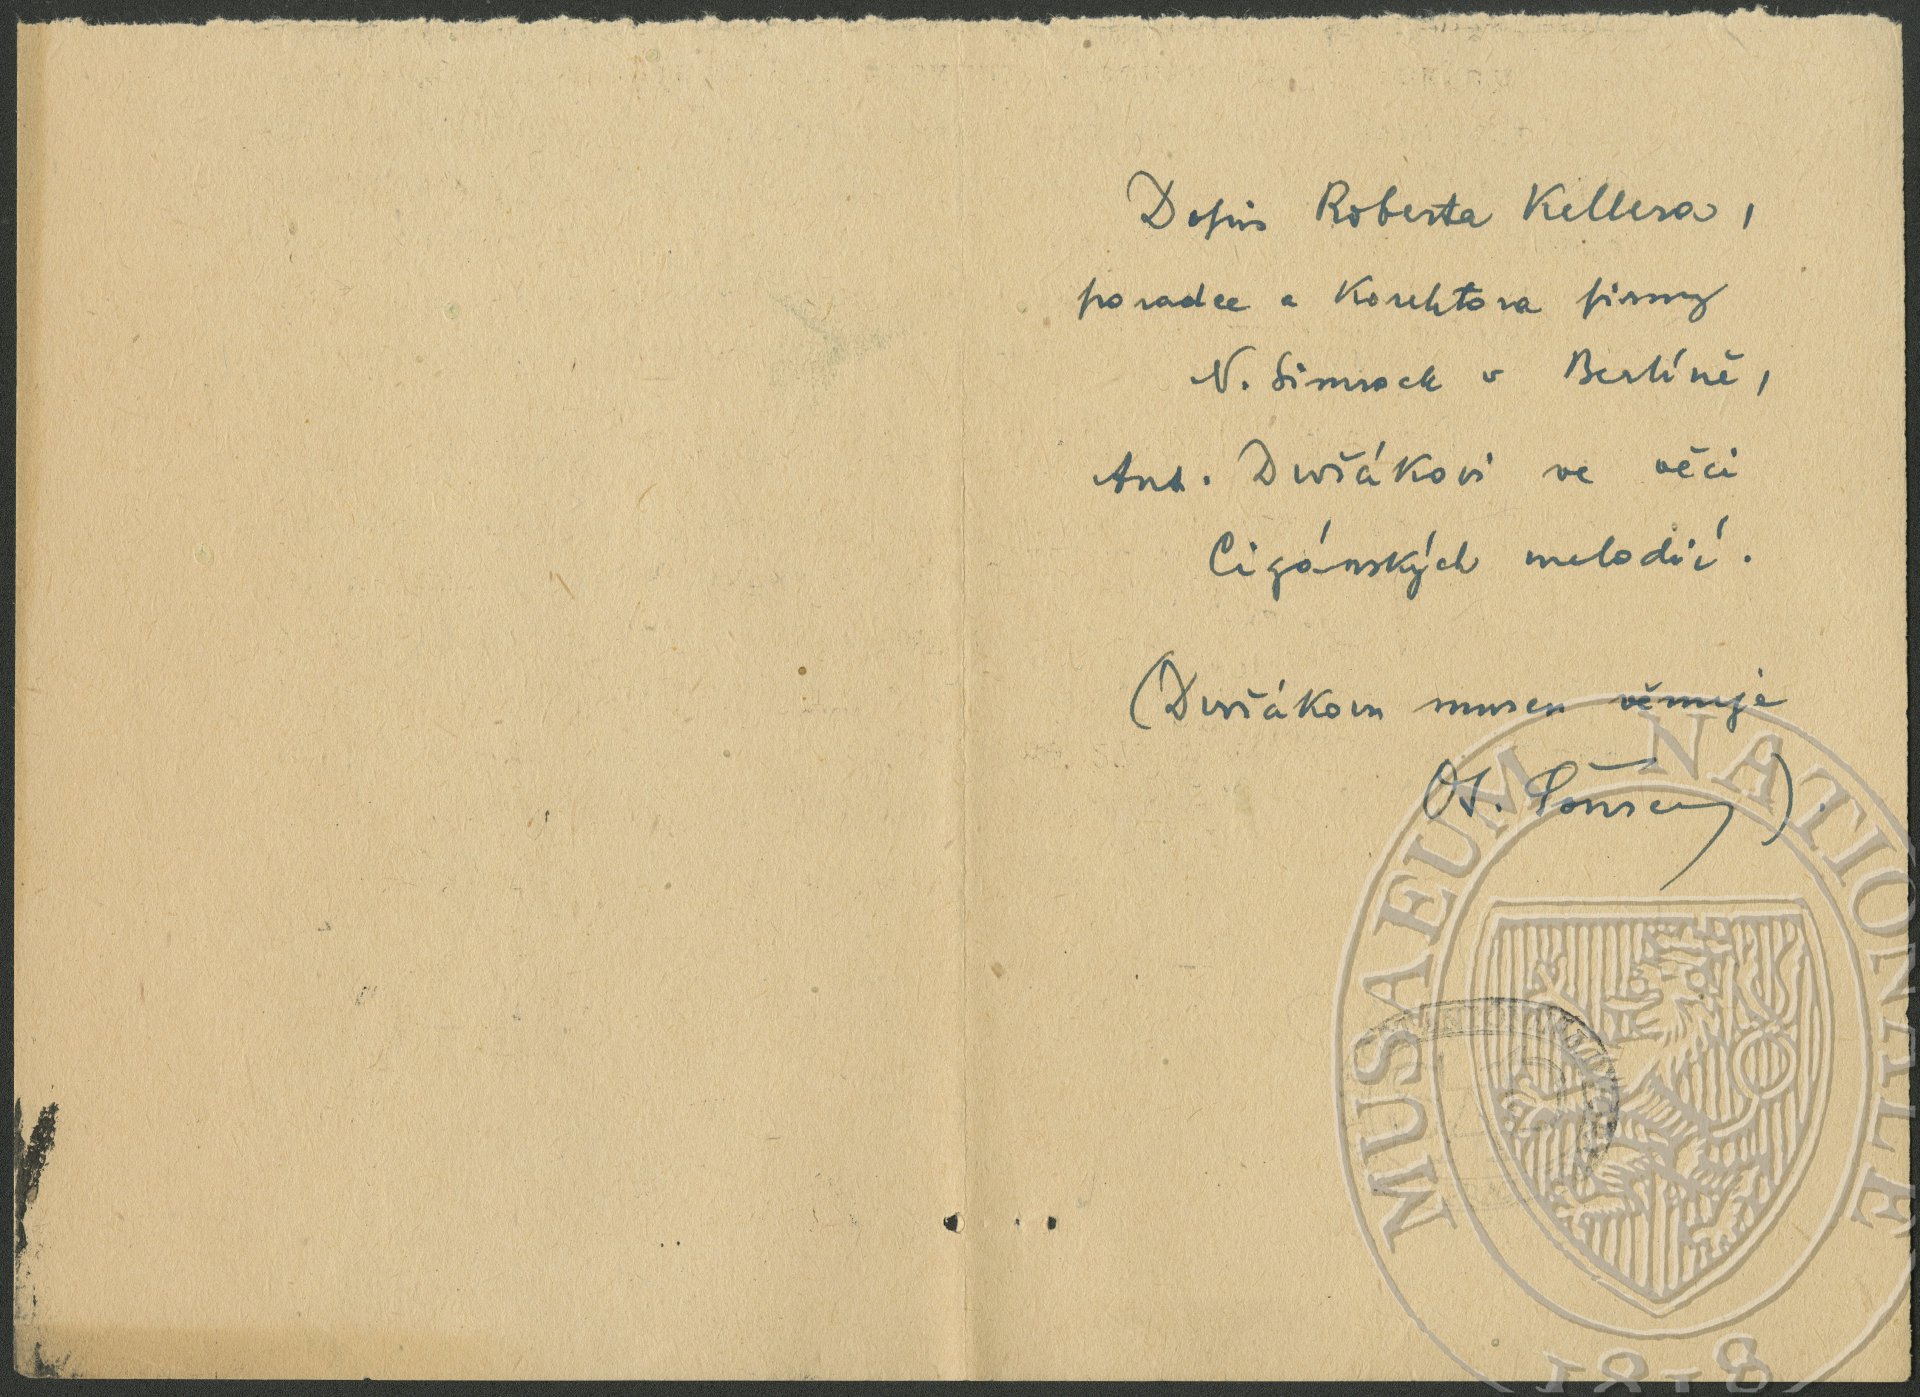 Dopis Roberta Kellera,
poradce a korektora firmy
N. Simrock v Berlíně,
Ant. Dvořákovi ve věci
Cigánských melodií.
(Dvořákovu museu věnuje
Ot. Šourek).
MUSAEUM NATIONALE
1818